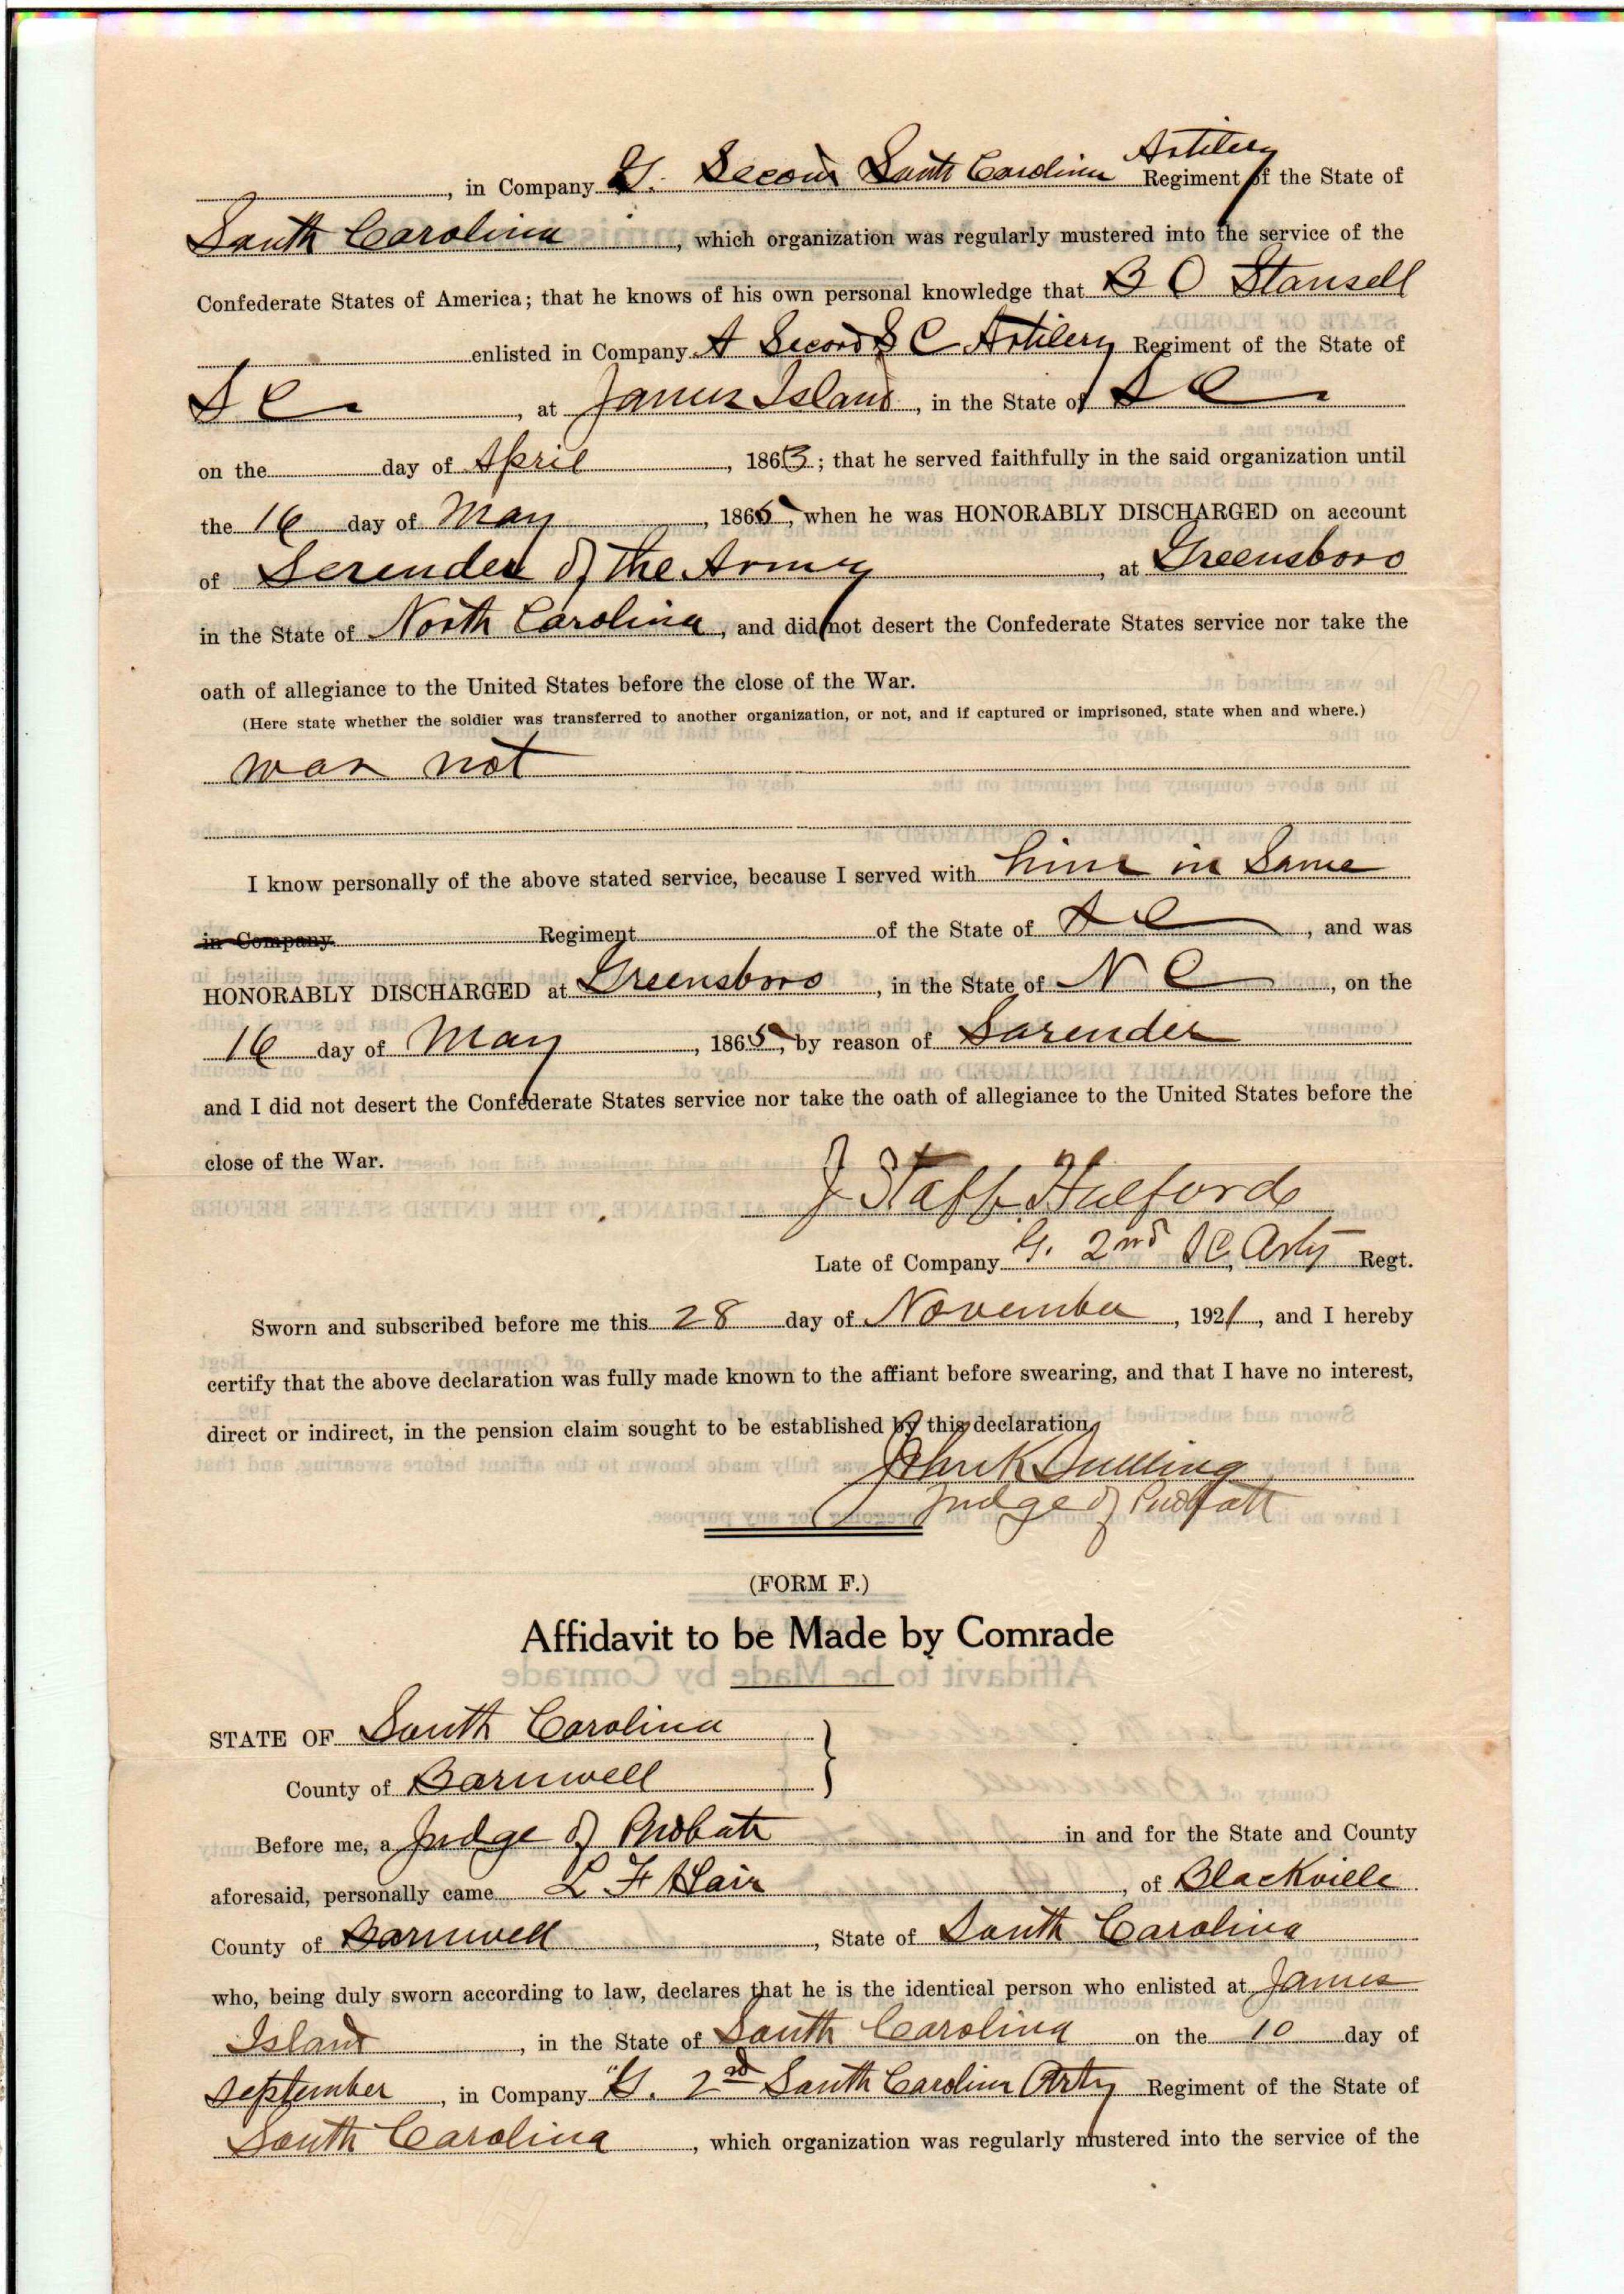 , in Company G. Second South Carolina Artilery Regiment of the State of
South Carolina, which organization was regularly mustered into the service of the
Confederate States of America; that he knows of his own personal knowledge that B O Stansell
enlisted in Company A Second S C Artilery Regiment of the State of
S C, at James Island, in the State of S C
on the day of April, 1863; that he served faithfully in the said organization until
the 16 day of May, 1865, when he was HONORABLY DISCHARGED on account
of Serender of the Army, at Greensboro
in the State of North Carolina, and did not desert the Confederate States service nor take the
oath of allegiance to the United States before the close of the War.
(Here state whether the soldier was transferred to another organization, or not, and if captured or imprisoned, state when and where.)
was not
I know personally of the above stated service, because I served with him in Same
in Company Regiment of the State of S C, and was
HONORABLY DISCHARGED at Greensboro, in the State of N C, on the
16 day of May, 1865, by reason of Sarender
and I did not desert the Confederate States service nor take the oath of allegiance to the United States before the
close of the War.
J Staff Hulford
Late of Company G. 2nd S C, Arty Regt.
Sworn and subscribed before me this 28 day of November, 1921, and I hereby
certify that the above declaration was fully made known to the affiant before swearing, and that I have no interest,
direct or indirect, in the pension claim sought to be established by this declaration,
John K Snelling
Judge of Probate
(FORM F.)
Affidavit to be Made by Comrade
STATE OF South Carolina }
County of Barnwell
Before me, a Judge of Probate in and for the State and County
aforesaid, personally came L F Hair, of Blackville
County of Barnwell, State of South Carolina
who, being duly sworn according to law, declares that he is the identical person who enlisted at James
Island, in the State of South Carolina on the 10 day of
September, in Company "G. 2nd South Carolina Arty Regiment of the State of
South Carolina, which organization was regularly mustered into the service of the